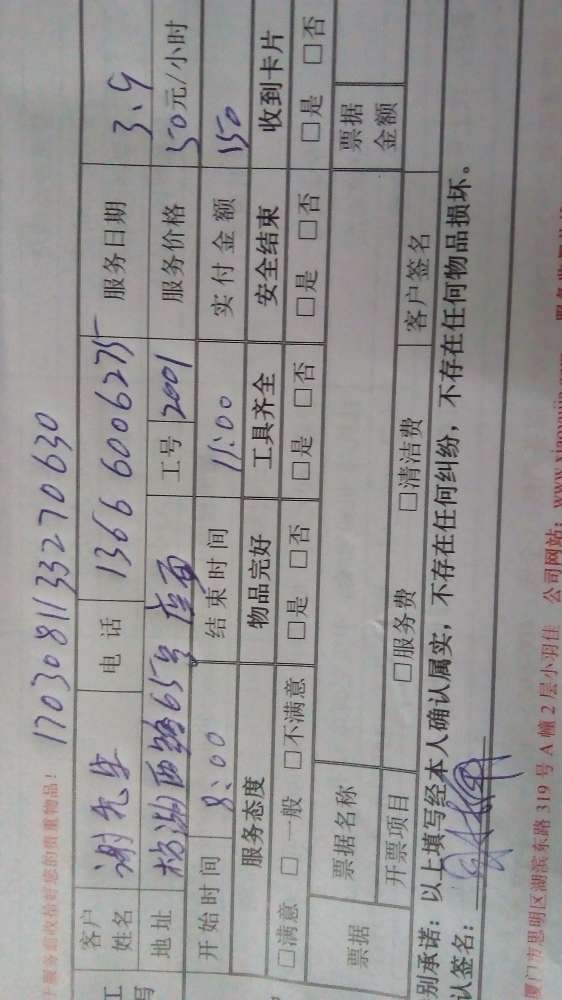 服务前请收拾好您的贵重物品！
17030811332706​30
客户姓名 谢先生 电话 13666006275 服务日期 3.9
地址 65号店面 工号 2001 服务价格 50元/小时
开始时间 8:00 结束时间 11:00 实付金额 150
服务态度 物品完好 工具齐全 安全结束 收到卡片
□满意 □一般 □不满意 □是 □否 □是 □否 □是 □否 □是 □否
票据 票据名称 票据金额
开票项目 □服务费 □清洁费 客户签名
别承诺：以上填写经本人确认属实，不存在任何纠纷，不存在任何物品损坏。
认签名：
厦门市思明区湖滨东路 319 号 A 幢 2 层小羽佳 公司网站：www.xiaoyujia.com